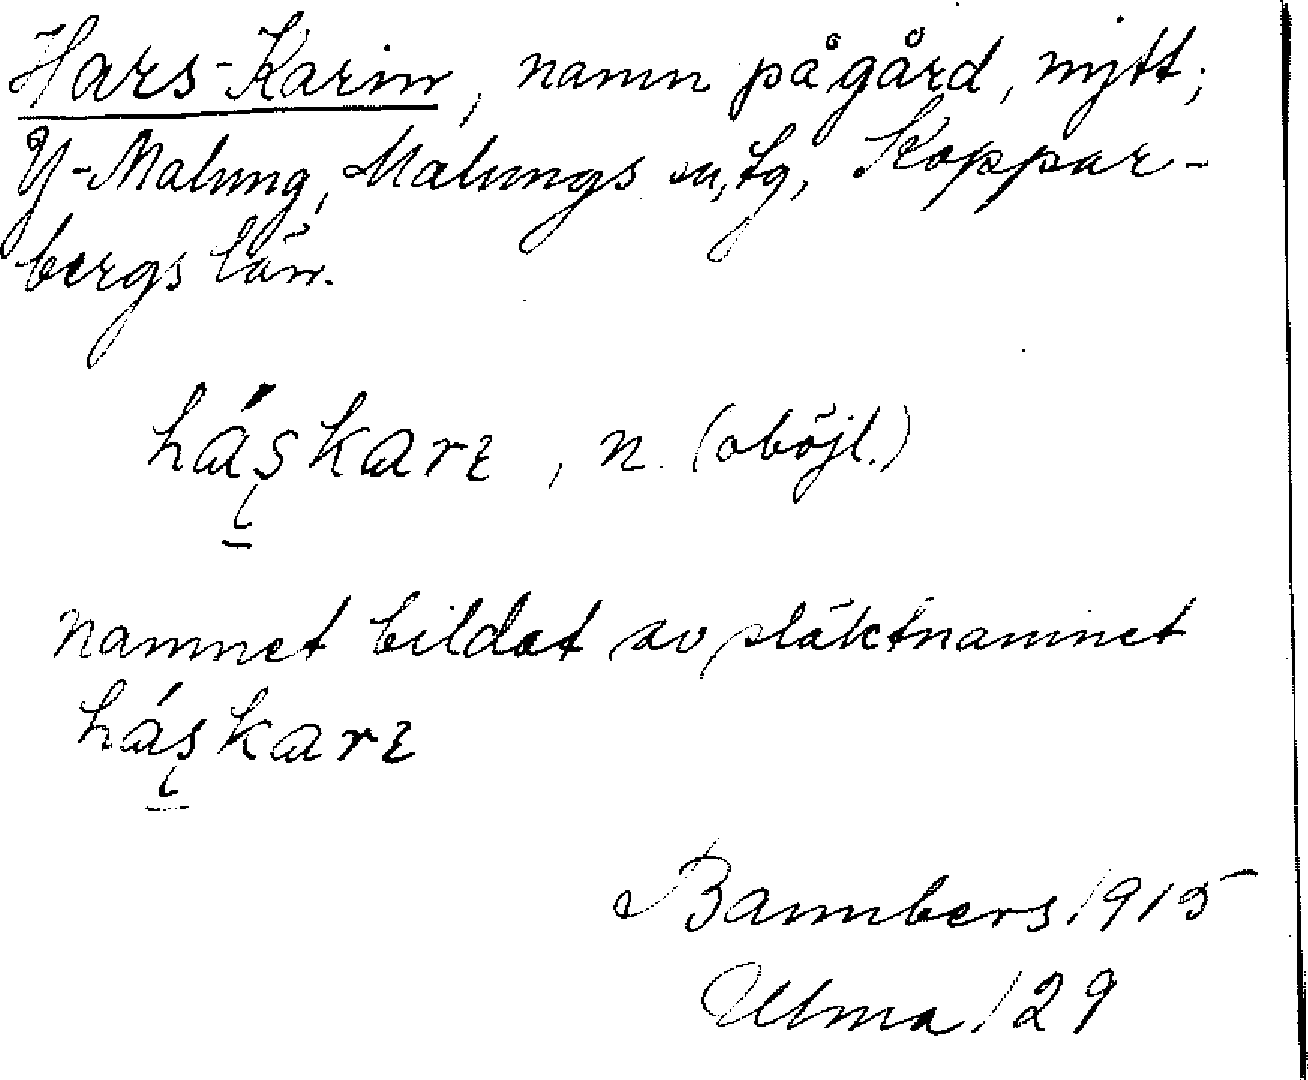 Hars-Karin, namn på gård, nytt;
Y-Malung, Malungs sn, tg, Koppar-
bergs län.
háşkarɪ, n. (oböjl.)
namnet bildat av släktnamnet
háşkarɪ
Bannbers 1915
Ulma 129